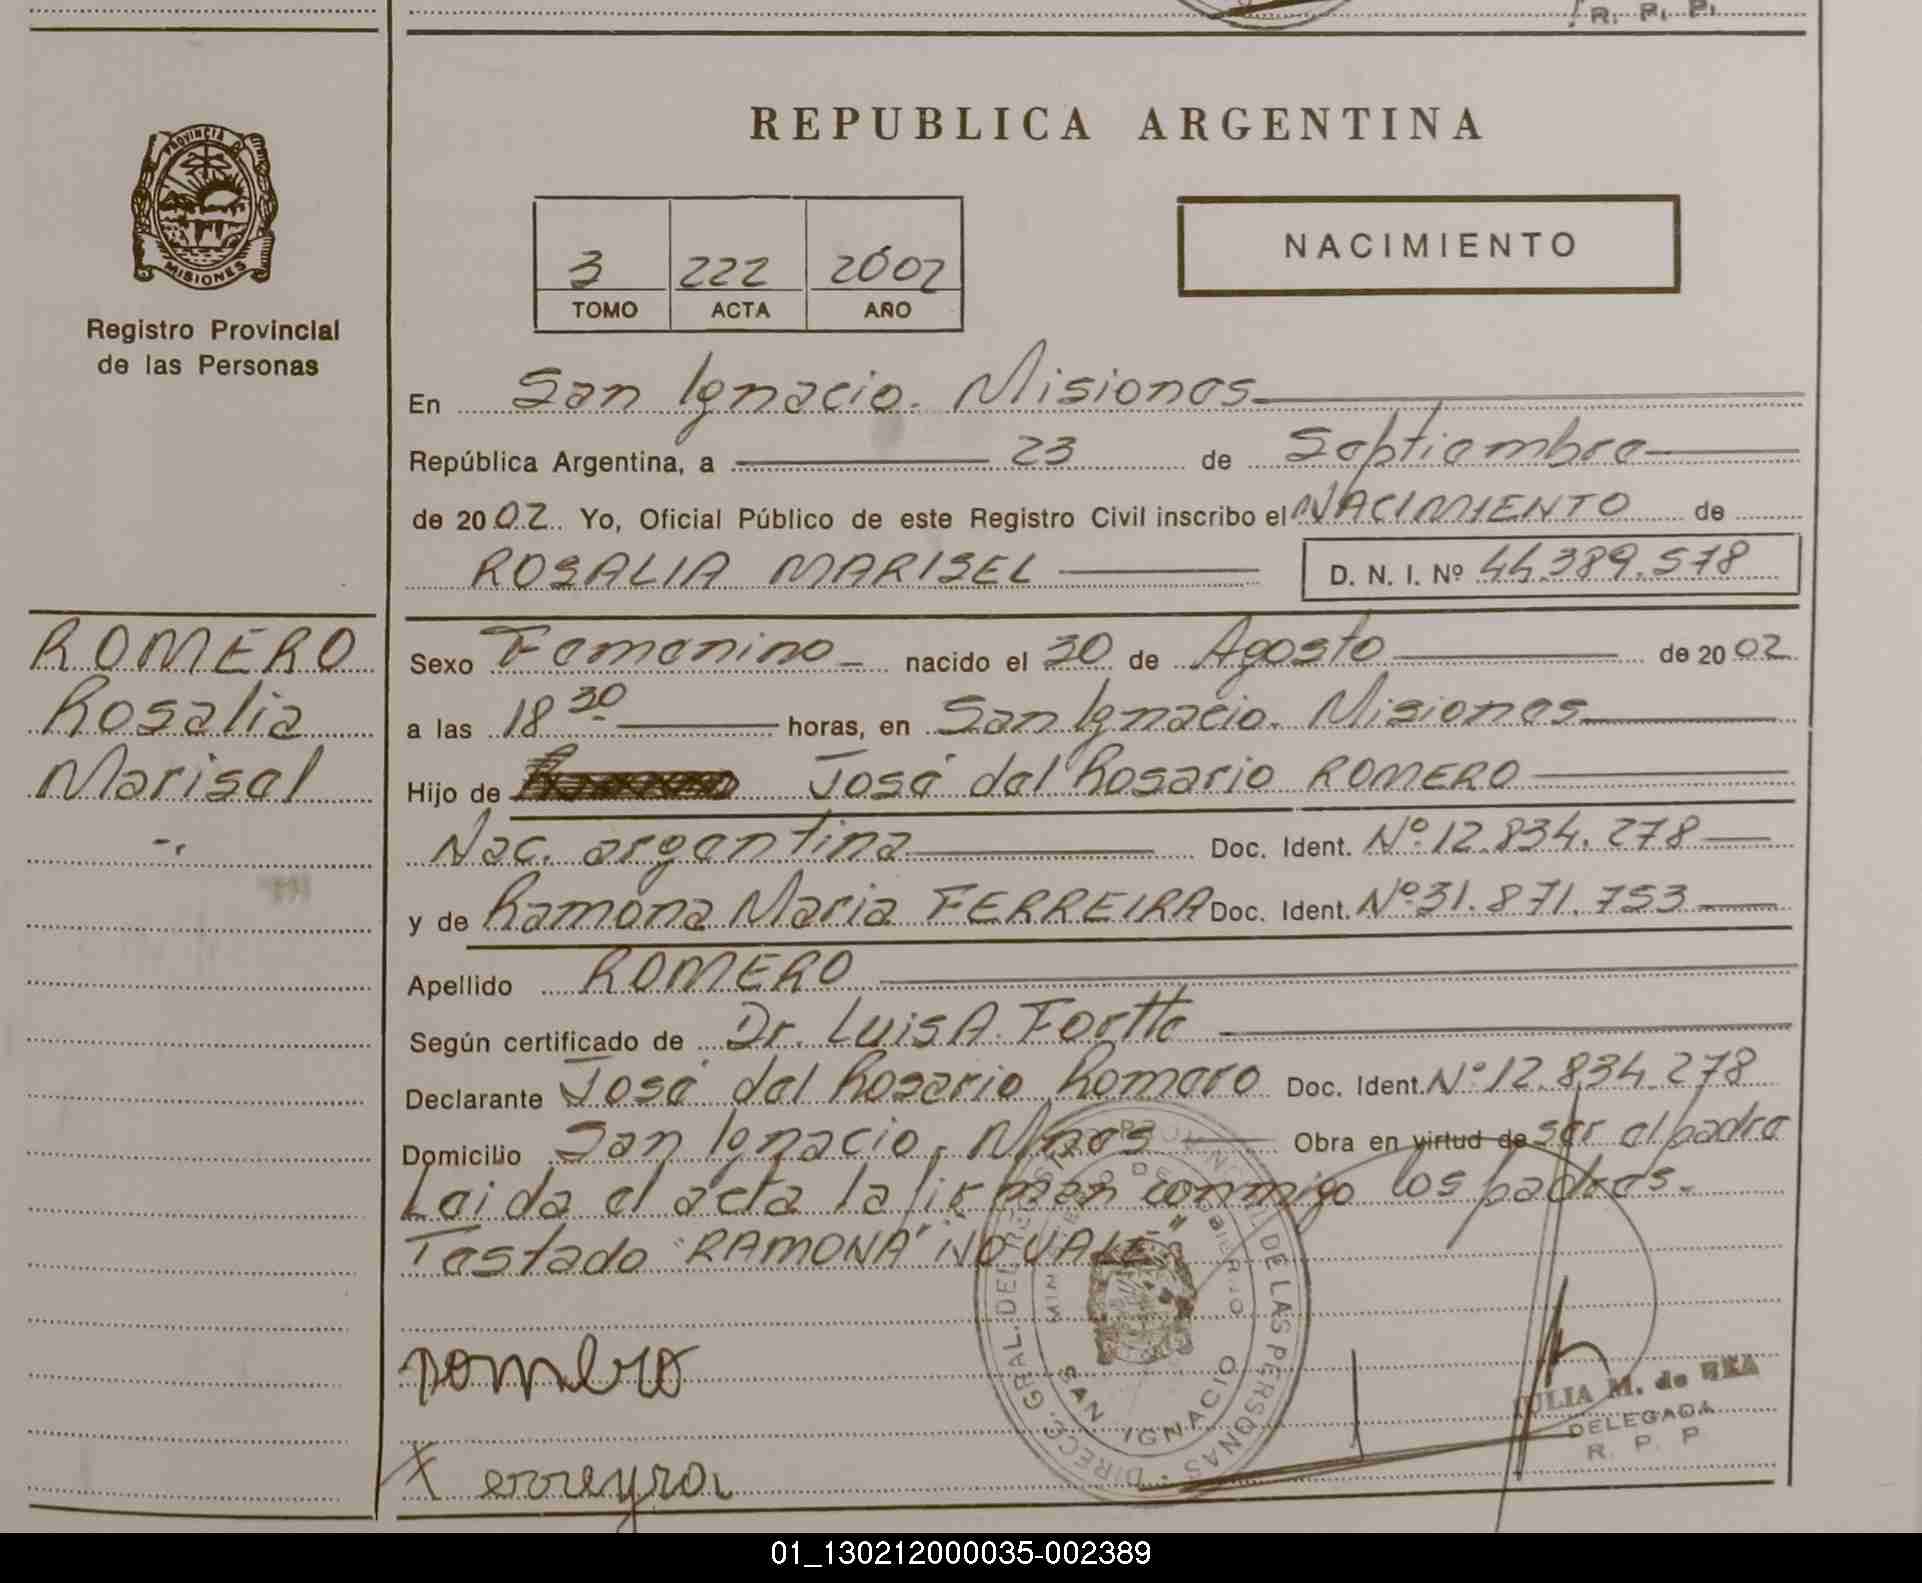 R. P. P.
PROVINCIA
MISIONES
Registro Provincial
de las Personas
ROMERO
Rosalia
Marisel
REPUBLICA ARGENTINA
3 222 2002
TOMO ACTA AÑO
NACIMIENTO
En San Ignacio. Misiones
República Argentina, a 23 de Septiembre
de 2002 Yo, Oficial Público de este Registro Civil inscribo el NACIMIENTO de
ROSALIA MARISEL D. N. I. Nº 44.389.578
Sexo Femenino nacido el 30 de Agosto de 2002
a las 18 30 horas, en San Ignacio. Misiones
Hijo de José del Rosario ROMERO
Nac. argentina Doc. Ident. Nº 12.834.278
y de Ramona Maria FERREIRA Doc. Ident. Nº 31.871.753
Apellido ROMERO
Según certificado de Dr. Luis A.
Declarante José del Rosario Romero Doc. Ident. Nº 12.834.278
Domicilio San Ignacio, Mnes Obra en virtud de ser el padre
Leida el acta la firman conmigo los padres.
Testado "RAMONA" NO VALE"
DIRECC. GRAL. DEL REGISTRO PROVINCIAL DE LAS PERSONAS
MINISTERIO DE GOBIERNO
SAN IGNACIO
romero
X
JULIA M. de REA
DELEGADA
R. P. P.
01_130212000035-002389